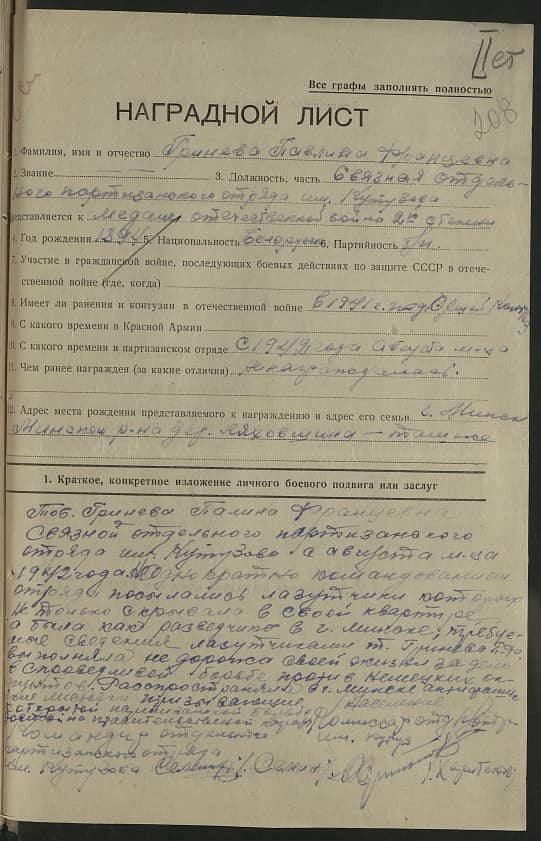 II ст
208
Все графы заполнять полностью
НАГРАДНОЙ ЛИСТ
1. Фамилия, имя и отчество Гринева Павлина Францевна
2. Звание — — 3. Должность, часть Связная отдель-
ного партизанского отряда им. Кутузова
представляется к медали отечественной война 2й степени
4. Год рождения 1894 5. Национальность Белорус 6. Партийность б/п
7. Участие в гражданской войне, последующих боевых действиях по защите СССР в отече-
ственной войне (где, когда)
8. Имеет ли ранения и контузии в отечественной войне в 1941 г. под
9. С какого времени в Красной Армии
10. С какого времени в партизанском отряде С 1942 года августа м-ца
11. Чем ранее награжден (за какие отличия) не награждалась.
12. Адрес места рождения представляемого к награждению и адрес его семьи г. Минск
Минской р-на дер. Ляховщина —
1. Краткое, конкретное изложение личного боевого подвига или заслуг
Тов. Гринева Палина Францевна
Связной отдельного партизанского
отряда им. Кутузова с августа м-ца
1942 года. командованием
отряда посылались лазутчики которых
не только скрывала в своей квартире
а была как разведчик в г. Минске, требуе-
мые сведения лазутчиками т. Гринева
выполняла не дорожа своей жизни за дело
в справедливой борьбе против немецких ок-
купантов. Распространяла в г. Минске
призывающие население
к открытой
Командир отдельного Комиссар отд.
партизанского отряда им. Кутуз
им. Кутузова